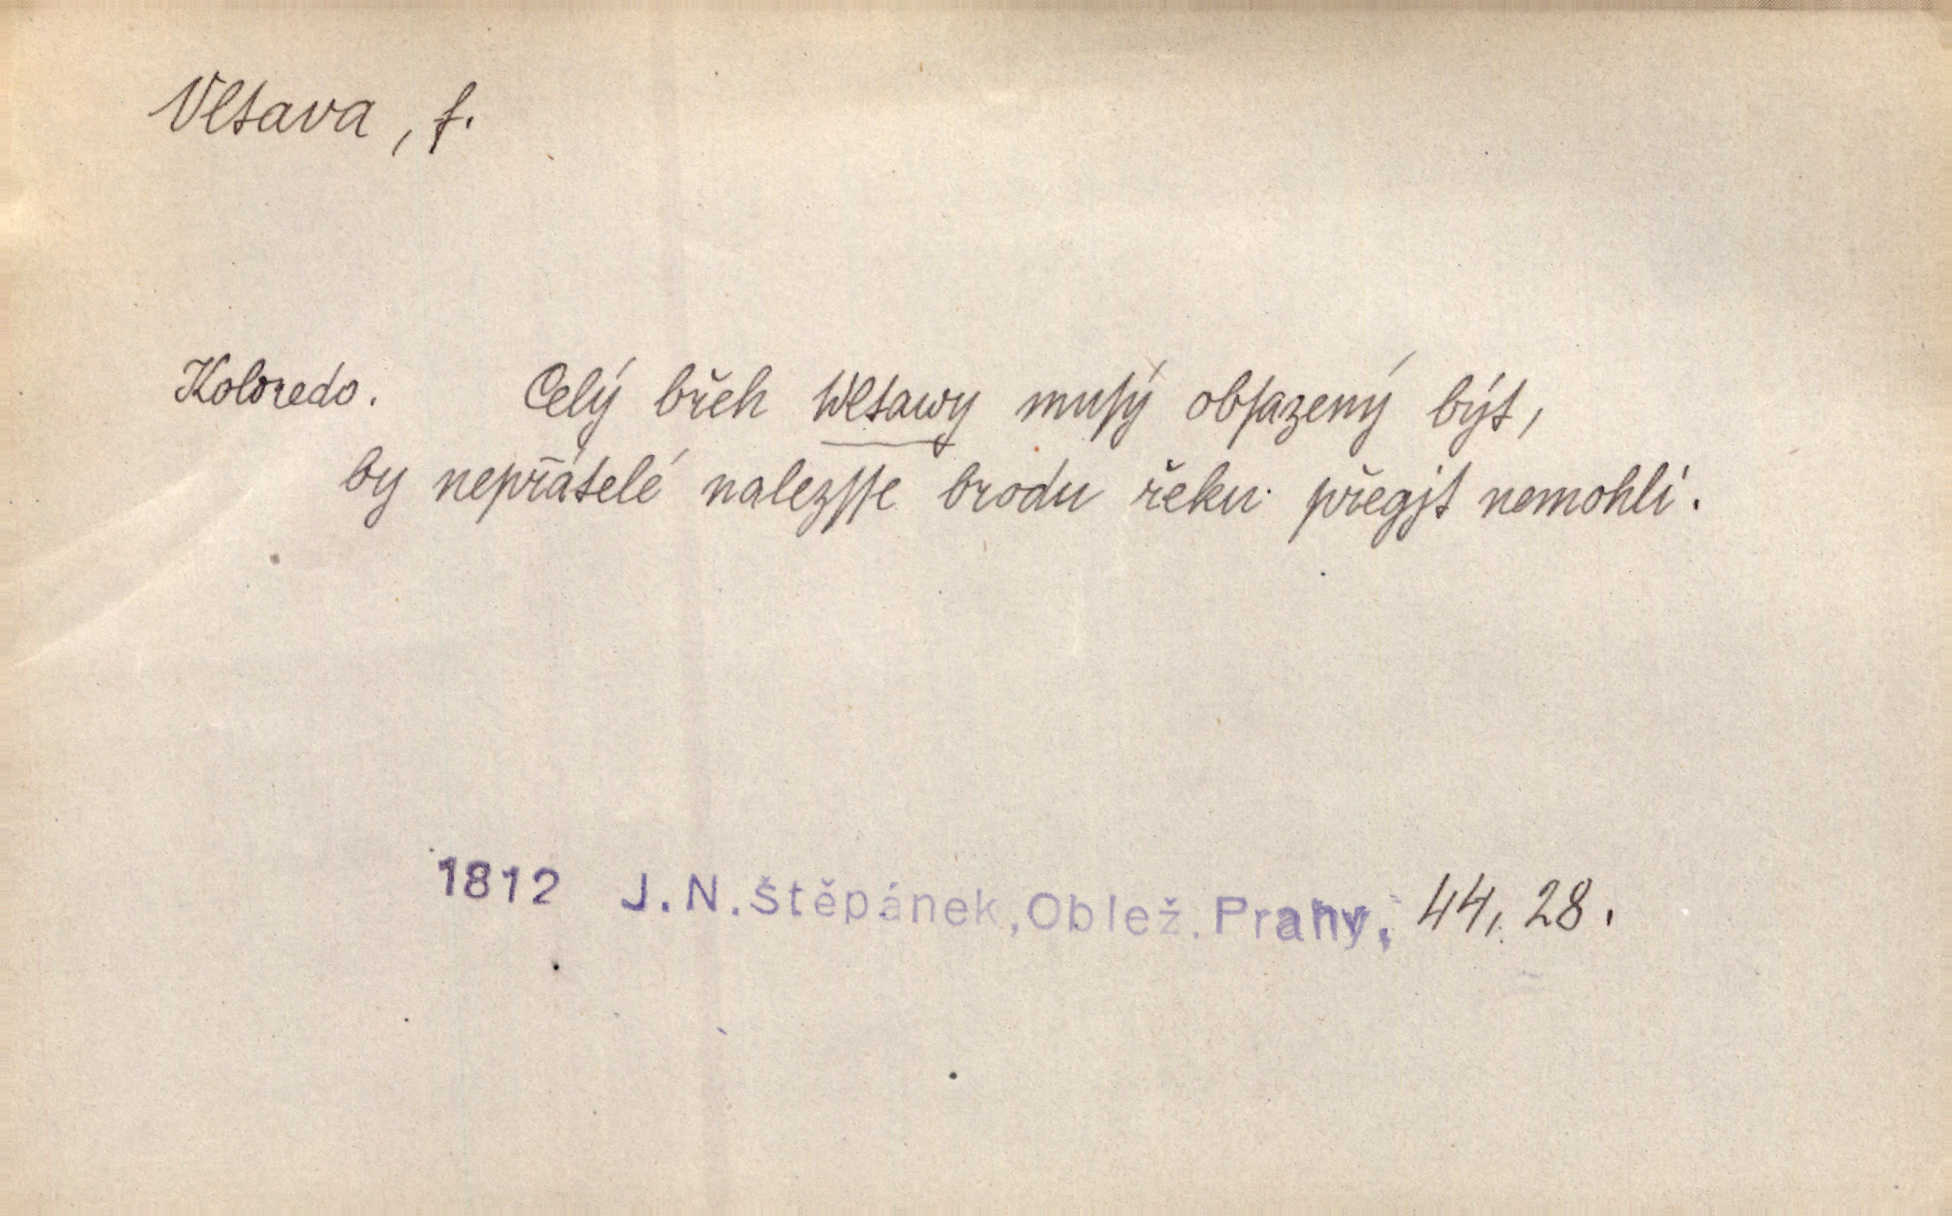 Vltava, f.
Koloredo. Celý břeh Wltawy muſý obſazený být,
by nepřátelé nalezſſe brodu řeku přegjt nemohli.
1812 J.N.Štěpánek,Oblež.Prahy, 44, 28.